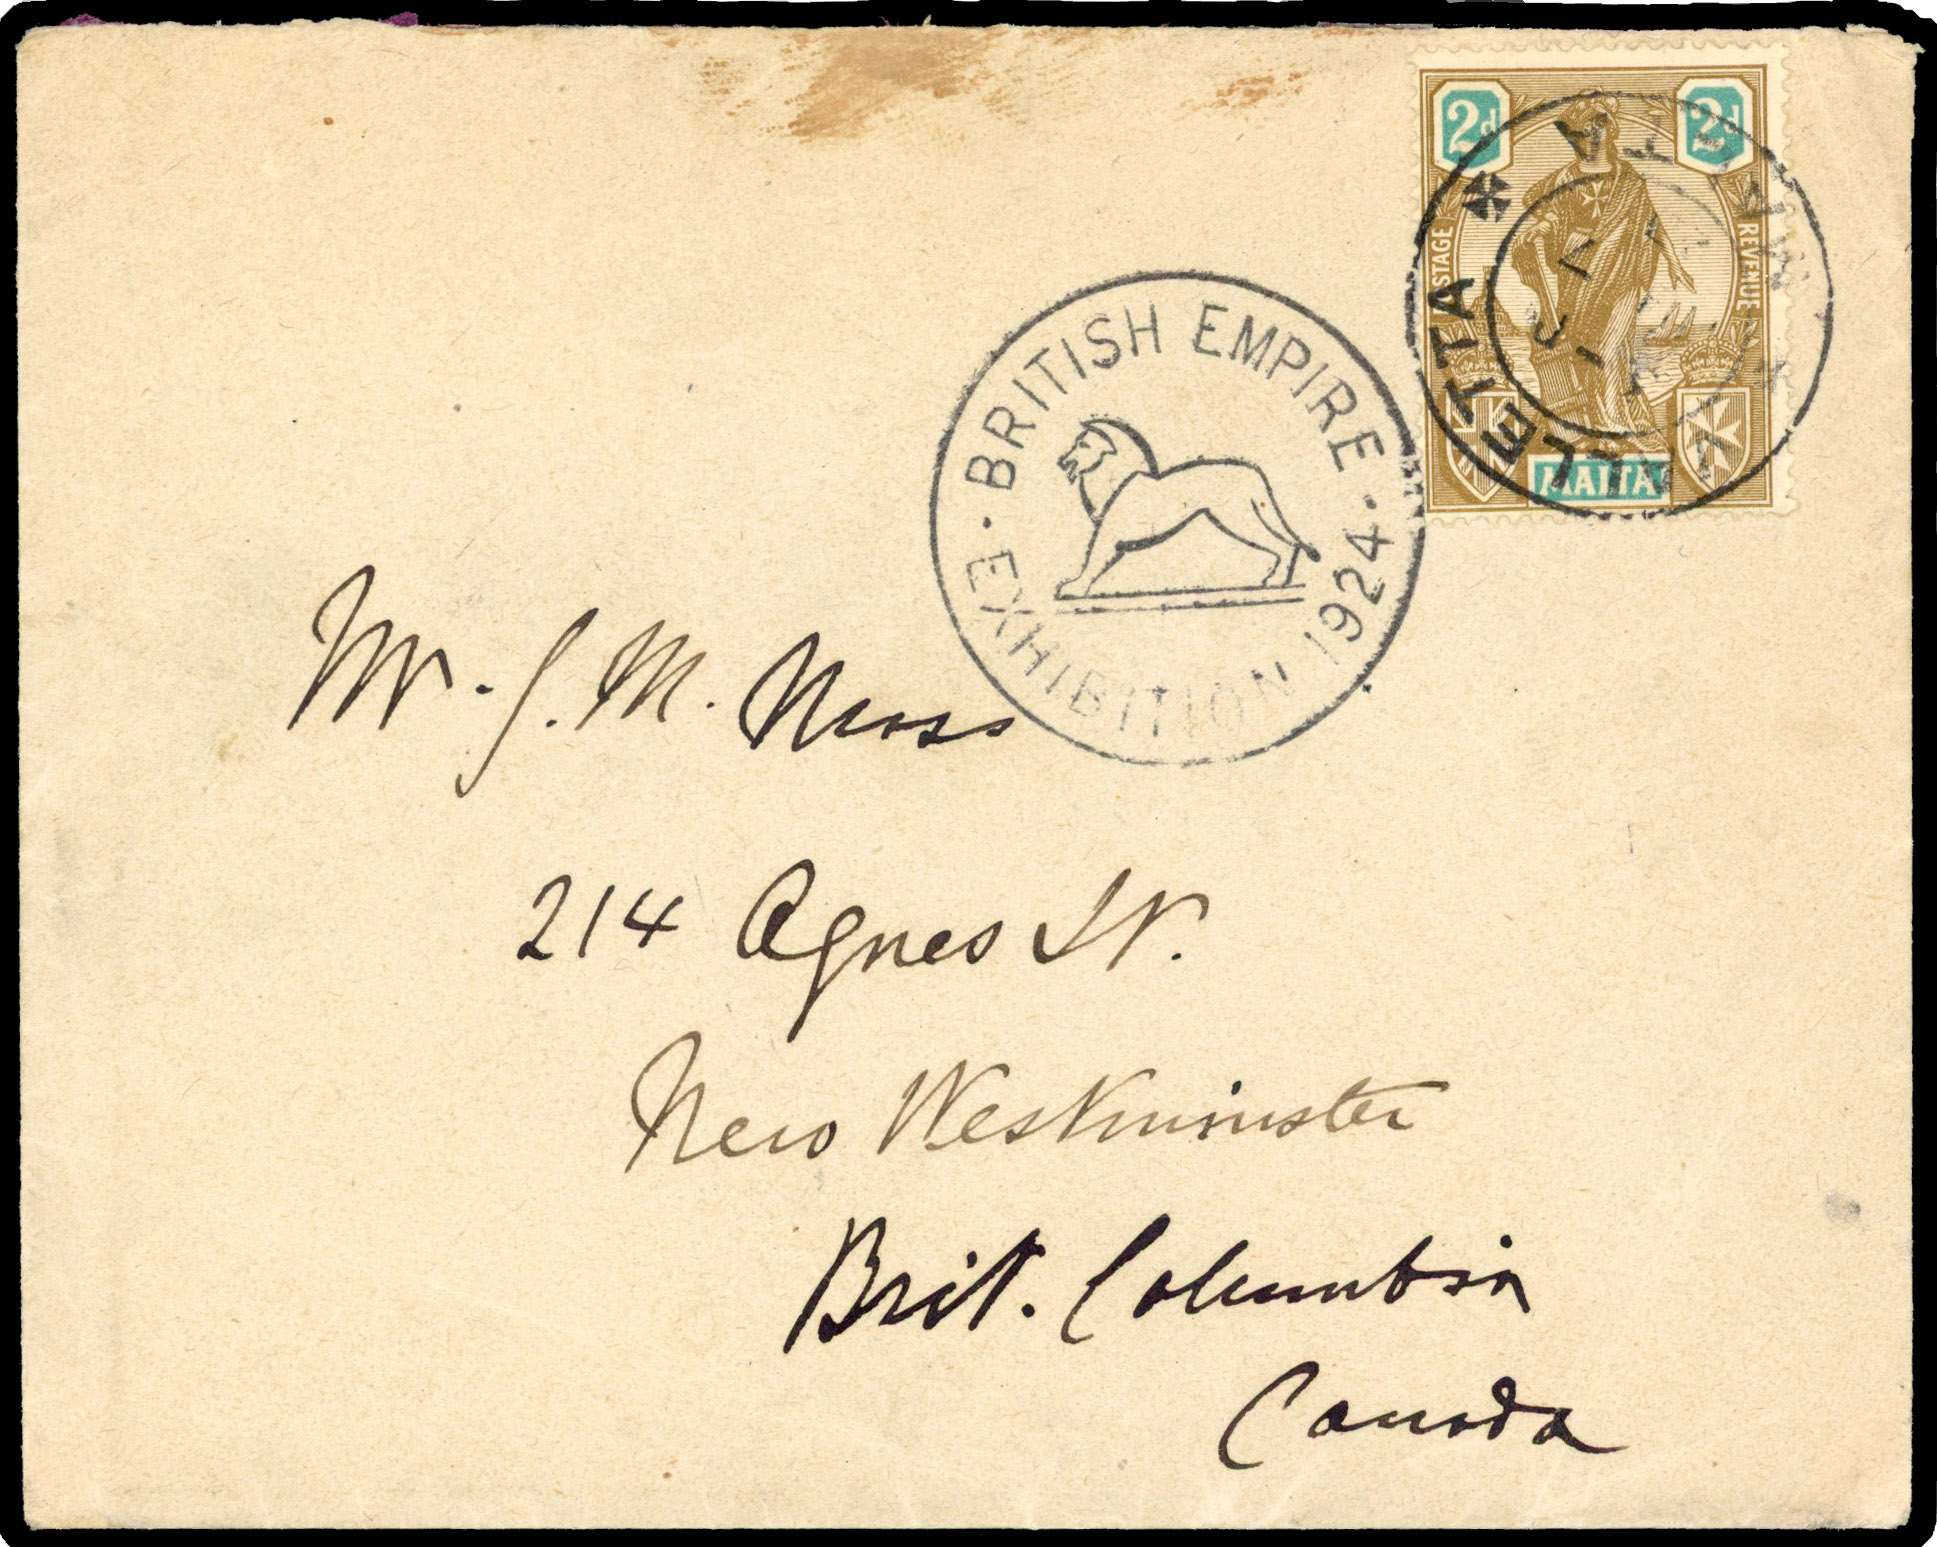 2d 2d
POSTAGE
REVENUE
MALTA
VALLETTA
MALTA
BRITISH EMPIRE
EXHIBITION 1924
Mr. J. M.
214 Agnes St.
New Westminster
Brit. Columbia
Canada